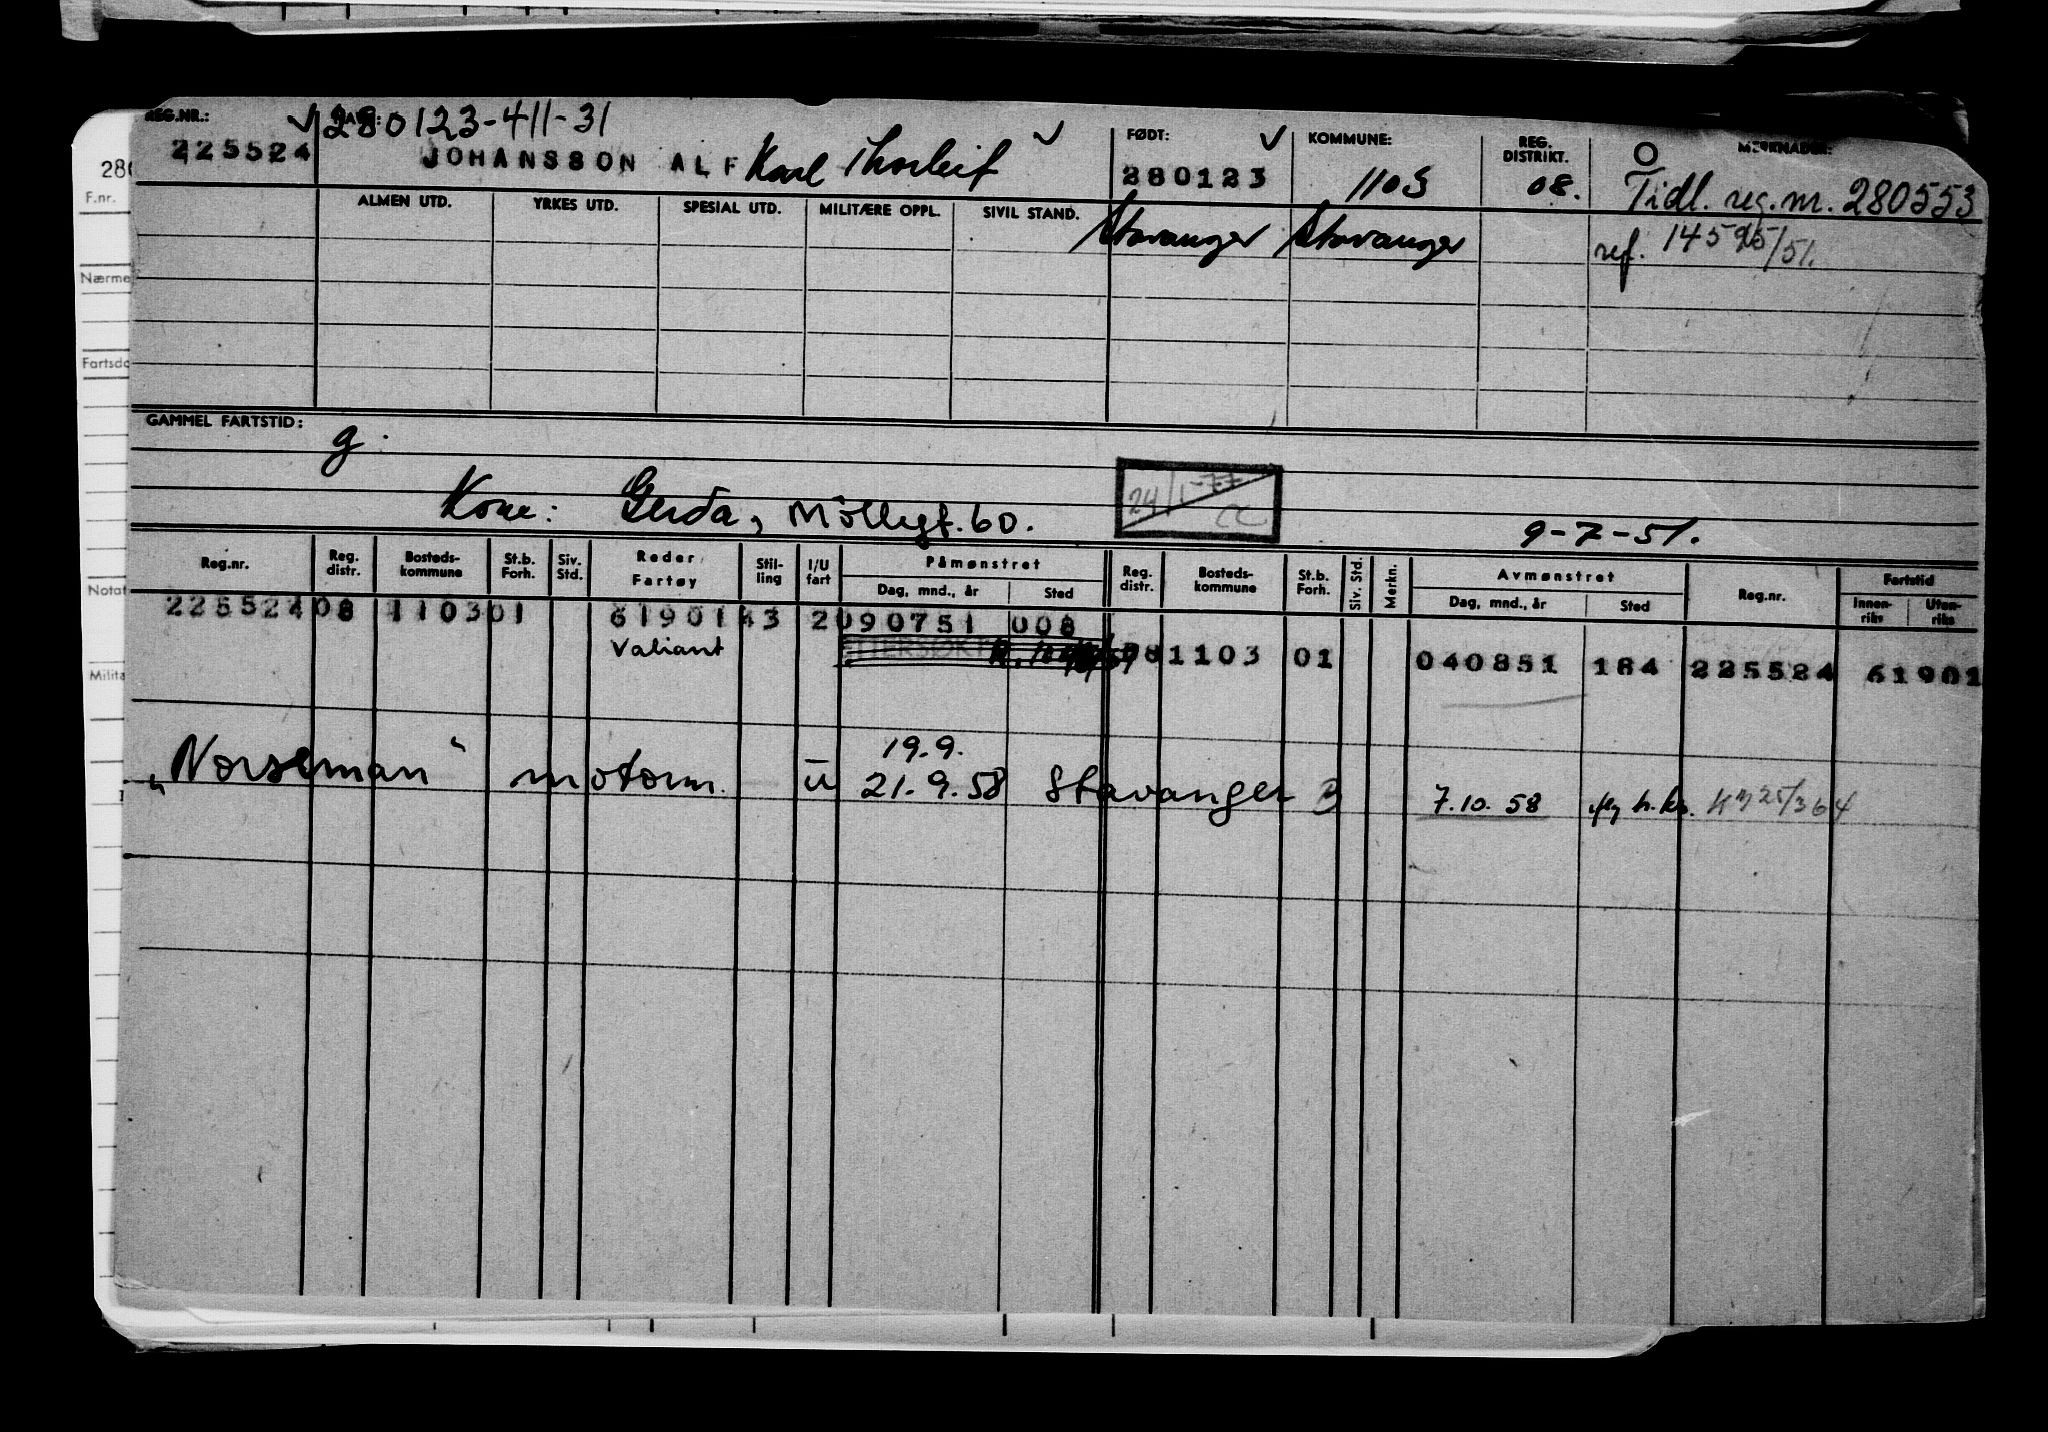 REG.NR.: 280123-411-31 FØDT: KOMMUNE: REG. DISTRIKT. MERKNADER:
225524 JOHANSSON ALF Karl Thorleif 280123 1103 08. Tidl. reg.nr. 280553
ALMEN UTD. YRKES UTD. SPESIAL UTD. MILITÆRE OPPL. SIVIL STAND. Stavanger Stavanger ref. 14595/51.
28
F.nr.
Nærme
Fartsdo
GAMMEL FARTSTID:
g.
24/1-77
CC
Kone: Gerda, Möllegt. 60. 9-7-51.
Reg.nr. Reg. distr. Bosteds-kommune St.b. Forh. Siv. Std. Reder Fartøy Stil-ling I/U fart Påmønstret Dag, mnd., år Sted Reg. distr. Bosteds-kommune St.b. Forh. Siv. Std. Merkn. Avmønstret Dag, mnd., år Sted Reg.nr. Fartstid Innen-riks Uten-riks
Notat
225524 08 1103 01 61901 43 2 090751 008
Valiant 1103 01 040851 184 225524 61901
Milita
19.9.
„Norseman" motorm. ū 21.9.58 Stavanger B 7.10.58